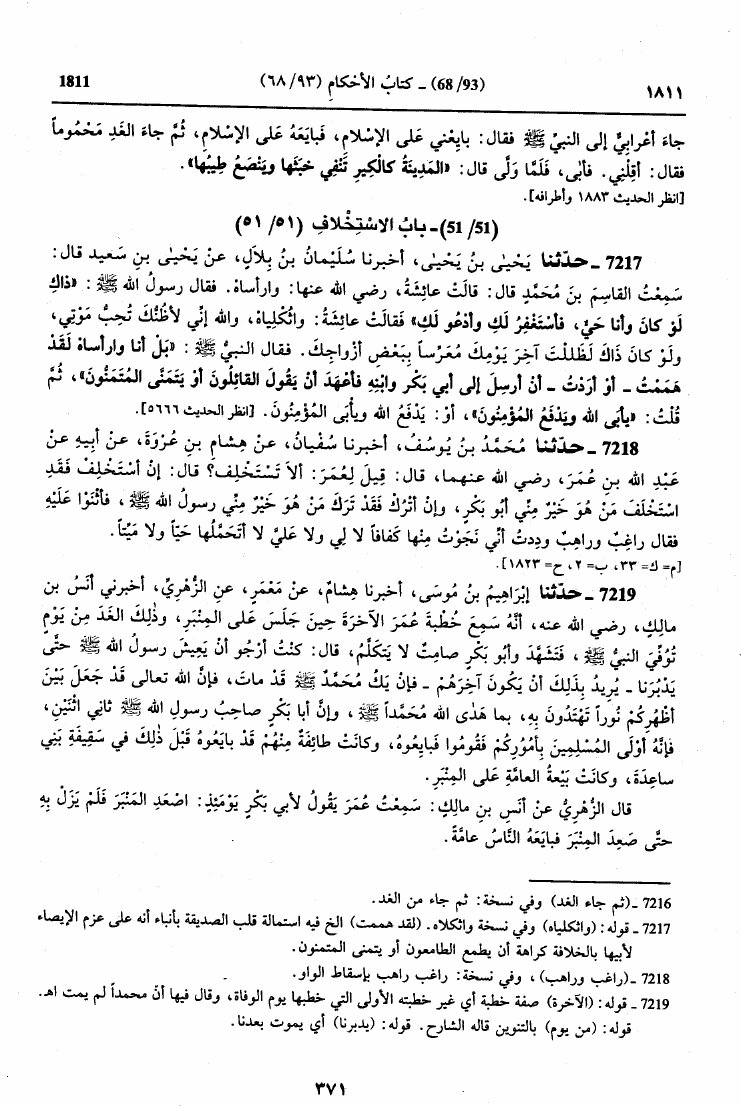 ١٨١١ (68/93) ـ كتابُ الأحْكامِ (٦٨/٩٣) 1811
جاءَ أعْرابِيٌّ إلى النبيِّ ﷺ فقال: بايِعْني عَلى الإسْلام، فَبايَعَهُ عَلى الإسْلام، ثُمَّ جاءَ الغَدِ مَحْمُوماً
فقال: أقِلْنِي. فأبى، فَلَمَّا وَلَّى قال: «المَدِينَةُ كالْكِيرِ تَنْفِي خَبَثَها ويَنْصَعُ طِيبُها».
[انظر الحديث ١٨٨٣ وأطرافه].
(51/51)ـ بابُ الاسْتِخْلافِ (٥١/٥١)
7217 ـ حدّثنا يَحْيىٰ بنُ يَحْيىٰ، أخبرنا سُلَيْمانُ بنُ بِلالٍ، عنْ يَحْيىٰ بنِ سَعِيد قال:
سَمِعْتُ القاسِمَ بنَ مُحَمَّدٍ قال: قالَتْ عائِشَةُ، رضي الله عنها: وارأساهْ. فقال رسولُ الله ﷺ: «ذاكِ
لَوْ كانَ وأنا حَيٌّ، فأسْتَغْفِرُ لَكِ وأدْعُو لَكِ» فَقالَتْ عائِشَةُ: واثُكْلِياهْ، والله إنِّي لأظُنُّكَ تُحِبُّ مَوْتِي،
ولَوْ كانَ ذَاكَ لَظَلِلْتَ آخِرَ يَوْمِكَ مُعَرِّساً بِبَعْضِ أزْواجِكَ. فقال النبيُّ ﷺ: «بَلْ أنا وارأساهْ لَقَدْ
هَمَمْتُ ـ أوْ أرَدْتُ ـ أنْ أُرسِلَ إلى أبي بَكْر وابْنِهِ فأعْهَدَ أنْ يَقُولَ القائِلُونَ أوْ يَتَمَنَّى المُتَمَنُّونَ»، ثُمَّ
قُلْتُ: «يأبَى الله ويَدْفَعُ المُؤْمِنُونَ»، أوْ: يَدْفَعُ الله ويأْبَى المُؤْمِنُونَ. [انظر الحديث ٥٦٦٦].
7218 ـ حدّثنا مُحَمَّدُ بنُ يُوسُفَ، أخبرنا سُفْيانُ، عنْ هِشامِ بنِ عُرْوَةَ، عنْ أبِيهِ عنْ
عَبْدِ الله بنِ عُمَرَ، رضي الله عنهما، قال: قِيلَ لِعُمَرَ: ألاَ تَسْتَخْلِف؟ قال: إنْ أسْتَخْلِفْ فَقَدِ
اسْتَخْلَفَ مَنْ هُوَ خَيْرٌ مِنِّي أبُو بَكْرٍ، وإنْ أتْرُكْ فَقَدْ تَرَكَ مَنْ هُوَ خَيْرٌ مِنِّي رسولُ الله ﷺ، فأثْنَوْا عَلَيْهِ
فقال راغِبٌ وراهِبٌ ودِدتُ أنِّي نَجَوْتُ مِنْها كَفافاً لا لِي ولا عَليَّ لا أتَحَمَّلُها حَيّاً ولا مَيِّتاً.
[م= ك= ٣٣، ب= ٢، ح= ١٨٢٣].
7219 ـ حدّثنا إبْراهِيمُ بنُ مُوسَى، أخبرنا هِشامٌ، عنْ مَعْمَرٍ، عنِ الزُّهْرِيِّ، أخبرني أنَسُ بن
مالِكٍ، رضي الله عنه، أنَّهُ سَمِعَ خُطْبَةَ عُمَرَ الآخِرَةَ حِينَ جَلَسَ عَلى المِنْبَرِ، وذٰلِكَ الغَدَ مِنْ يَوْمٍ
تُوُفِّيَ النبيُّ ﷺ، فَتَشَهَّدَ وأبُو بَكْرٍ صامِتٌ لا يَتَكَلَّمُ، قال: كُنْتُ أرْجُو أنْ يَعِيشَ رسولُ الله ﷺ حتَّى
يَدْبُرَنا ـ يُرِيدُ بِذٰلِكَ أنْ يَكُونَ آخِرَهُمْ ـ فإنْ يَكُ مُحَمَّدٌ ﷺ قَدْ ماتَ، فإنَّ الله تعالى قَدْ جَعَلَ بَيْنَ
أظْهُرِكُمْ نُوراً تَهْتَدُونَ بِهِ، بما هَدَى الله مُحَمَّداً ﷺ، وإنَّ أبا بَكْرٍ صاحِبُ رسولِ الله ﷺ ثانِي اثْنَيْنِ،
فإنَّهُ أوْلَى المُسْلِمِينَ بِأُمُورِكُمْ فَقُومُوا فَبايِعُوهُ، وكانَتْ طائِفَةٌ مِنْهُمْ قَدْ بايَعُوهُ قَبْلَ ذٰلِكَ في سَقِيفَةِ بَنِي
ساعِدَةَ، وكانَتْ بَيْعةُ العامَّةِ عَلى المِنْبَرِ.
قال الزُّهْرِيُّ عنْ أنَسِ بنِ مالِكٍ: سَمِعْتُ عُمَرَ يَقُولُ لأبي بَكْرٍ يَوْمَئِذٍ: اصْعَدِ المَنْبَرَ فَلَمْ يَزَلْ بِهِ
حتَّى صَعِدَ المِنْبَرَ فبايَعَهُ النَّاسُ عامَّةً.
7216 ـ(ثم جاء الغد) وفي نسخة: ثم جاء من الغد.
7217 ـ قوله: (واثكلياه) وفي نسخة واثكلاه. (لقد هممت) الخ فيه استمالة قلب الصديقة بأنباء أنه على عزم الإيصاء
لأبيها بالخلافة كراهة أن يطمع الطامعون أو يتمنى المتمنون.
7218 ـ(راغب وراهب)، وفي نسخة: راغب راهب بإسقاط الواو.
7219 ـ قوله: (الآخرة) صفة خطبة أي غير خطبته الأولى التي خطبها يوم الوفاة، وقال فيها أنّ محمداً لم يمت اهـ.
قوله: (من يوم) بالتنوين قاله الشارح. قوله: (يدبرنا) أي يموت بعدنا.
٣٧١